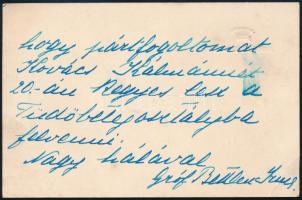 hogy pártfogoltomat
Kovács Kálmánnét
20-án kegyes lesz a
Tüdőbetegosztályba
felvenni.
Nagy hálával
Gróf Bethlen